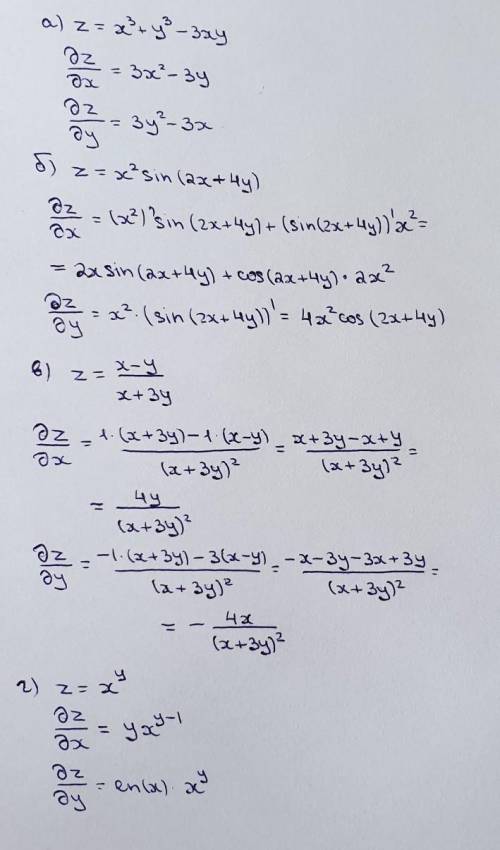 а) z = x³ + y³ − 3xy
∂z/∂x = 3x² − 3y
∂z/∂y = 3y² − 3x
б) z = x² sin (2x + 4y)
∂z/∂x = (x²)' sin (2x + 4y) + (sin(2x + 4y))' x² =
= 2x sin (2x + 4y) + cos (2x + 4y) · 2x²
∂z/∂y = x² · (sin (2x + 4y))' = 4x² cos (2x + 4y)
в) z = (x − y)/(x + 3y)
∂z/∂x = (1 · (x + 3y) − 1 · (x − y))/(x + 3y)² = (x + 3y − x + y)/(x + 3y)² =
= 4y/(x + 3y)²
∂z/∂y = (−1 · (x + 3y) − 3(x − y))/(x + 3y)² = (−x − 3y − 3x + 3y)/(x + 3y)² =
= − 4x/(x + 3y)²
г) z = x^y
∂z/∂x = y x^(y−1)
∂z/∂y = ln(x) · x^y